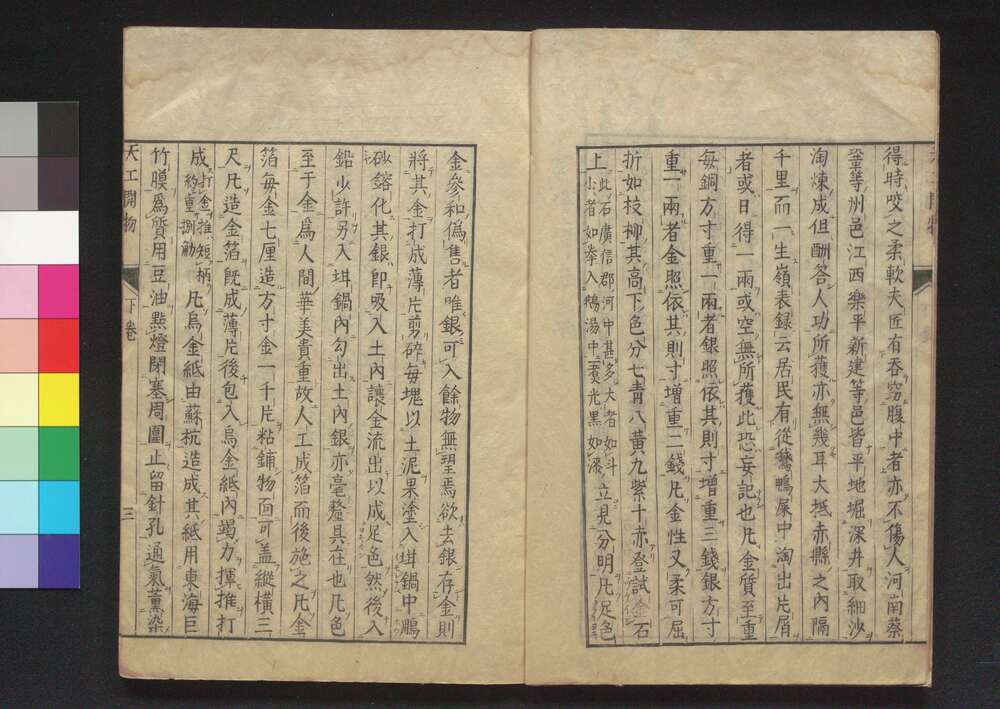 得時咬之柔軟夫匠有吞竊腹中者亦不傷人河南蔡
鞏等州邑江西樂平新建等邑皆平地堀深井取細沙
淘煉成但酬答人功所獲亦無幾耳大抵赤縣之內隔
千里而一生嶺表録云居民有從鵞鴨屎中淘出片屑
者或日得一兩或空無所獲此恐妄記也凡金質至重
每銅方寸重一兩者銀照依其則寸增重三錢銀方寸
重一兩者金照依其則寸增重二錢凡金性又柔可屈
折如枝柳其高下色分七青八黃九紫十赤登試金石
上
此石廣信郡河中甚多大者如斗
小者如拳入鵝湯中一煑光黑如漆
立見分明凡足色
金參和偽售者唯銀可入餘物無望焉欲去銀存金則
將其金打成薄片剪碎每塊以土泥果塗入坩鍋中鵬
砂鎔化其銀卽吸入土內讓金流出以成足色然後入
鉛少許另入坩鍋內勾出土內銀亦毫釐具在也凡色
至于金爲人間華美貴重故人工成箔而後施之凡金
箔每金七厘造方寸金一千片粘鋪物面可盖縱橫三
尺凡造金箔旣成薄片後包入烏金紙內竭力揮推打
成
打金推短柄
約重捌觔
凡烏金紙由蘇杭造成其紙用東海巨
竹膜爲質用豆油點燈閉塞周圍止留針孔通氣薰染
天工開物
下卷
三